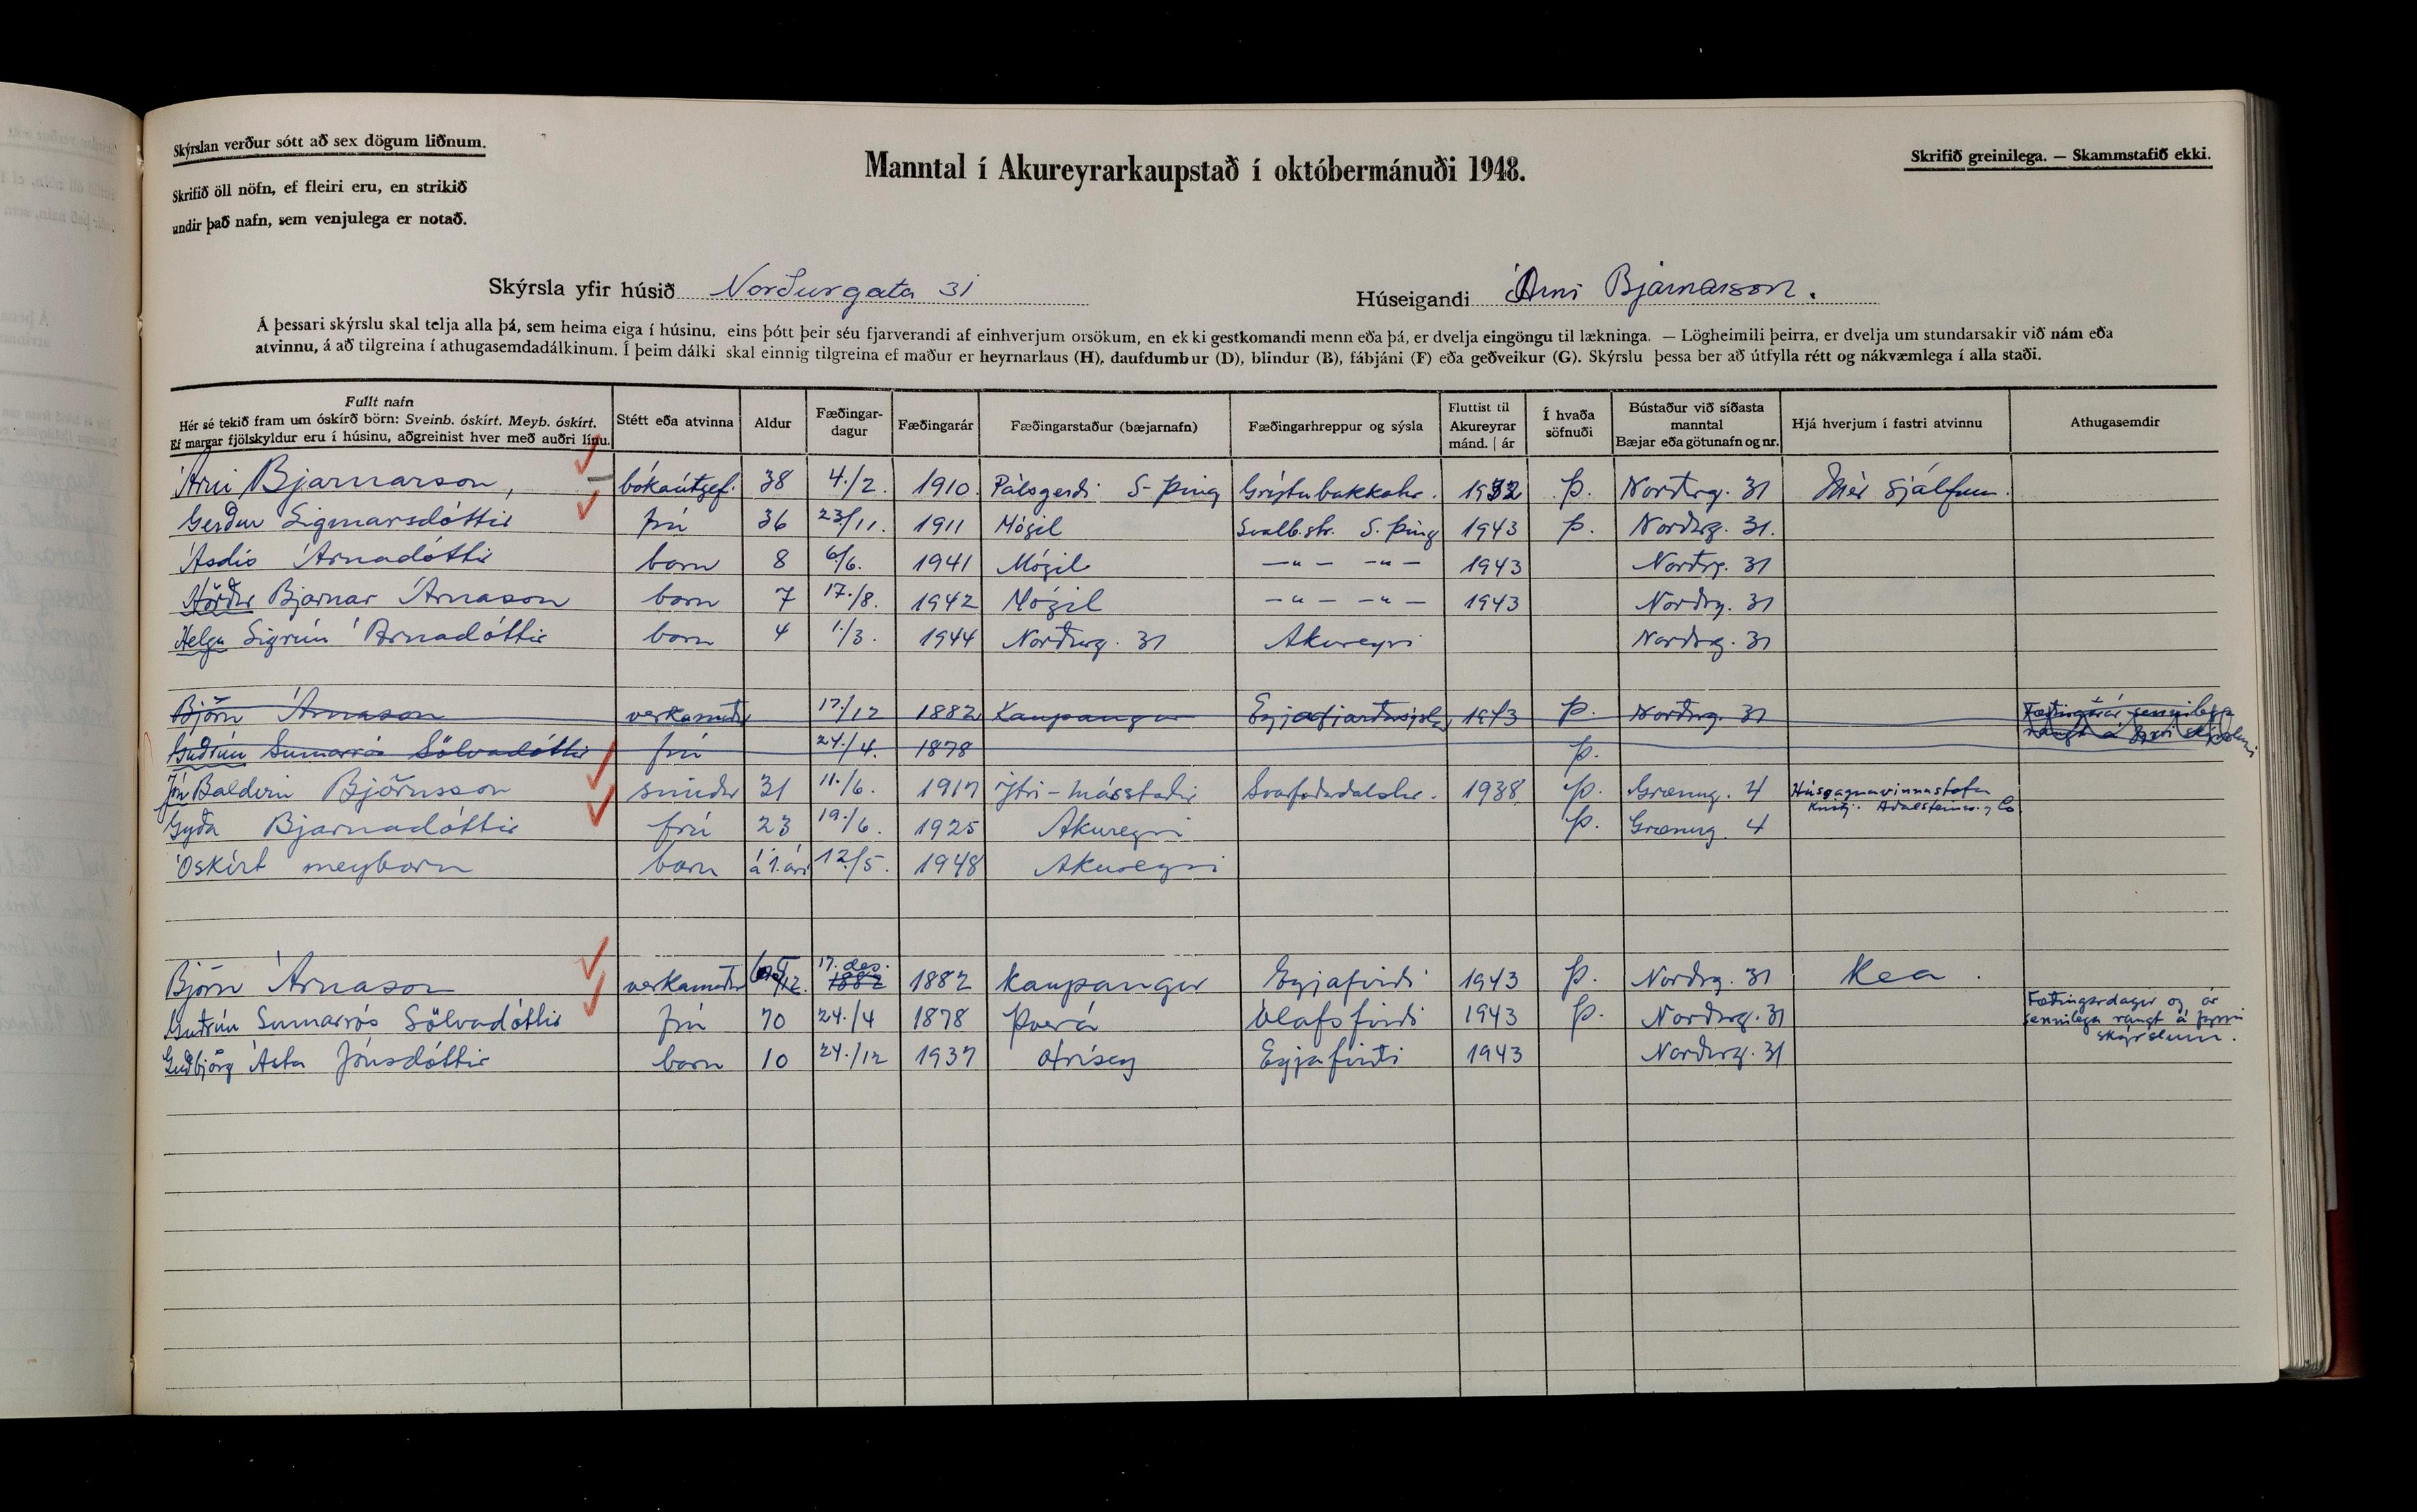 Skýrslan verður sótt að sex dögum liðnum.
Skrifið öll nöfn, ef fleiri eru, en strikið
undir það nafn, sem venjulega er notað.
Manntal í Akureyrarkaupstað í októbermánuði 1948.
Skrifið greinilega. — Skammstafið ekki.
Skýrsla yfir húsið Norðurgata 31
Húseigandi Árni Bjarnarson.
Á þessari skýrslu skal telja alla þá, sem heima eiga í húsinu, eins þótt þeir séu fjarverandi af einhverjum orsökum, en ekki gestkomandi menn eða þá, er dvelja eingöngu til lækninga. — Lögheimili þeirra, er dvelja um stundarsakir við nám eða
atvinnu, á að tilgreina í athugasemdadálkinum. Í þeim dálki skal einnig tilgreina ef maður er heyrnarlaus (H), daufdumbur (D), blindur (B), fábjáni (F) eða geðveikur (G). Skýrslu þessa ber að útfylla rétt og nákvæmlega í alla staði.
Fullt nafn
Hér sé tekið fram um óskírð börn: Sveinb. óskírt. Meyb. óskírt.
Ef margar fjölskyldur eru í húsinu, aðgreinist hver með auðri línu.
Stétt eða atvinna
Aldur
Fæðingar-
dagur
Fæðingarár
Fæðingarstaður (bæjarnafn)
Fæðingarhreppur og sýsla
Fluttist til
Akureyrar
mánd. | ár
Í hvaða
söfnuði
Bústaður við síðasta
manntal
Bæjar eða götunafn og nr.
Hjá hverjum í fastri atvinnu
Athugasemdir
Árni Bjarnarson, bókaútgef. 38 4./2. 1910 Pálsgerði S-Þing Grýtubakkahr. 1932 Þ. Norðrg. 31 Mér sjálfum.
Gerður Sigmarsdóttir frú 36 23/11. 1911 Mógil Svalb.str. S. Þing 1943 Þ. Norðrg. 31.
Ásdís Árnadóttir barn 8 6/6. 1941 Mógil —"— —"— 1943 Norðrg. 31
Hörður Bjarnar Árnason barn 7 17./8. 1942 Mógil —"— —"— 1943 Norðrg. 31
Helga Sigrún Árnadóttir barn 4 1/3. 1944 Norðurg. 31 Akureyri Norðrg. 31
Björn Árnason verkamaðr 17/12 1882 Kaupangur Eyjafjarðarsýsla 1943 Þ. Norðrg. 31 Fæðingarár sennilega
Guðrún Sumarrós Sölvadóttir frú 24./4. 1878 Þ.
Jón Baldvin Björnsson smiður 31 11./6. 1917 Ytri-Másstaðir Svarfaðardalshr. 1938 Þ. Grænug. 4 Húsgagnavinnustofa
Kristj. Aðalsteinss. & Co.
Gyða Bjarnadóttir frú 23 19./6. 1925 Akureyri Þ. Grænug. 4
Óskírt meybarn barn á 1. ári 12./5. 1948 Akureyri
Björn Árnason verkamaðr 17. des. 1882 1882 Kaupangur Eyjafirði 1943 Þ. Norðrg. 31 Kea.
Guðrún Sumarrós Sölvadóttir frú 70 24./4 1878 Þverá Ólafsfirði 1943 Þ. Norðurg. 31 Fæðingardagur og ár
sennilega rangt á fyrri
skýrslum.
Guðbjörg Ásta Jónsdóttir barn 10 24./12 1937 Hrísey Eyjafirði 1943 Norðurg. 31